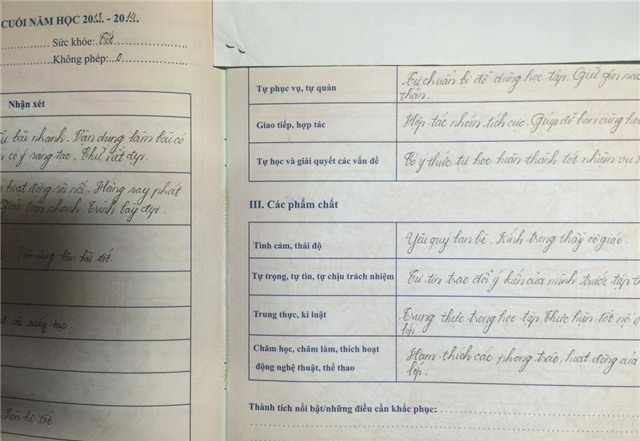 CUỐI NĂM HỌC 2013 - 2014.
Sức khỏe: Tốt
Không phép: 0
Nhận xét
bài nhanh. Vận dụng làm bài có
có ý sáng tạo. Chữ viết đẹp.
hoạt động sôi nổi. Hăng say phát
toán nhanh. Trình bày đẹp.
làm bài tốt.
sáng tạo.
tốt
Tự phục vụ, tự quản
Tự chuẩn bị đồ dùng học tập. Giữ gìn
thận.
Giao tiếp, hợp tác
Hợp tác nhóm tích cực. Giúp đỡ bạn cùng
Tự học và giải quyết các vấn đề
Có ý thức tự học hoàn thành tốt nhiệm vụ
III. Các phẩm chất
Tình cảm, thái độ
Yêu quý bạn bè. Kính trọng thầy cô giáo.
Tự trọng, tự tin, tự chịu trách nhiệm
Tự tin trao đổi ý kiến của mình trước tập
Trung thực, kỉ luật
Trung thực trong học tập. Thực hiện tốt nội
lớp.
Chăm học, chăm làm, thích hoạt
động nghệ thuật, thể thao
Ham thích các phong trào, hoạt động của
lớp.
Thành tích nổi bật/những điều cần khắc phục: